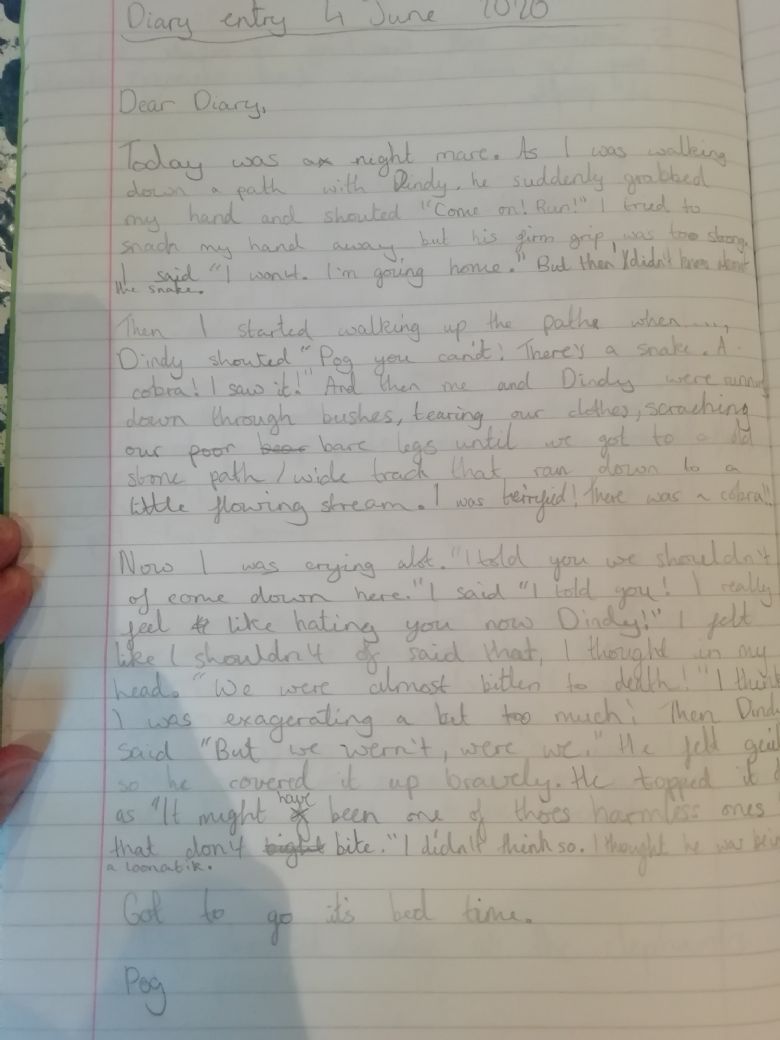 Diary entry 4 June 2020
Dear Diary,
Today was a night mare. As I was walking
down a path with Dindy, he suddenly grabbed
my hand and shouted "Come on! Run!" I tried to
snach my hand away, but his firm grip, was too strong.
I said "I won't. I'm going home." But then I didn't know about
the snake.
Then I started walking up the pathe when....,
Dindy shouted "Pog you can't! There's a snake. A
cobra! I saw it!" And then me and Dindy were
down through bushes, tearing our clothes, scraching
our poor bare legs until we got to a old
stone path/wide track that ran down to a
little flowing stream. I was terrifyed! There was a cobra!!
Now I was crying alot. "I told you we shouldn't
of come down here." I said "I told you! I really
feel like hating you now Dindy!" I felt
like I shouldn't of said that, I thought in my
head. "We were almost bitten to death!" I think
I was exagerating a bit too much! Then Dindy
said "But we wern't, were we." He felt
so he covered it up bravely. He topped it
as "It might have been one of thoes harmless ones
that don't bite." I didn't think so. I thought he was
a loonatik.
Got to go it's bed time.
Pog